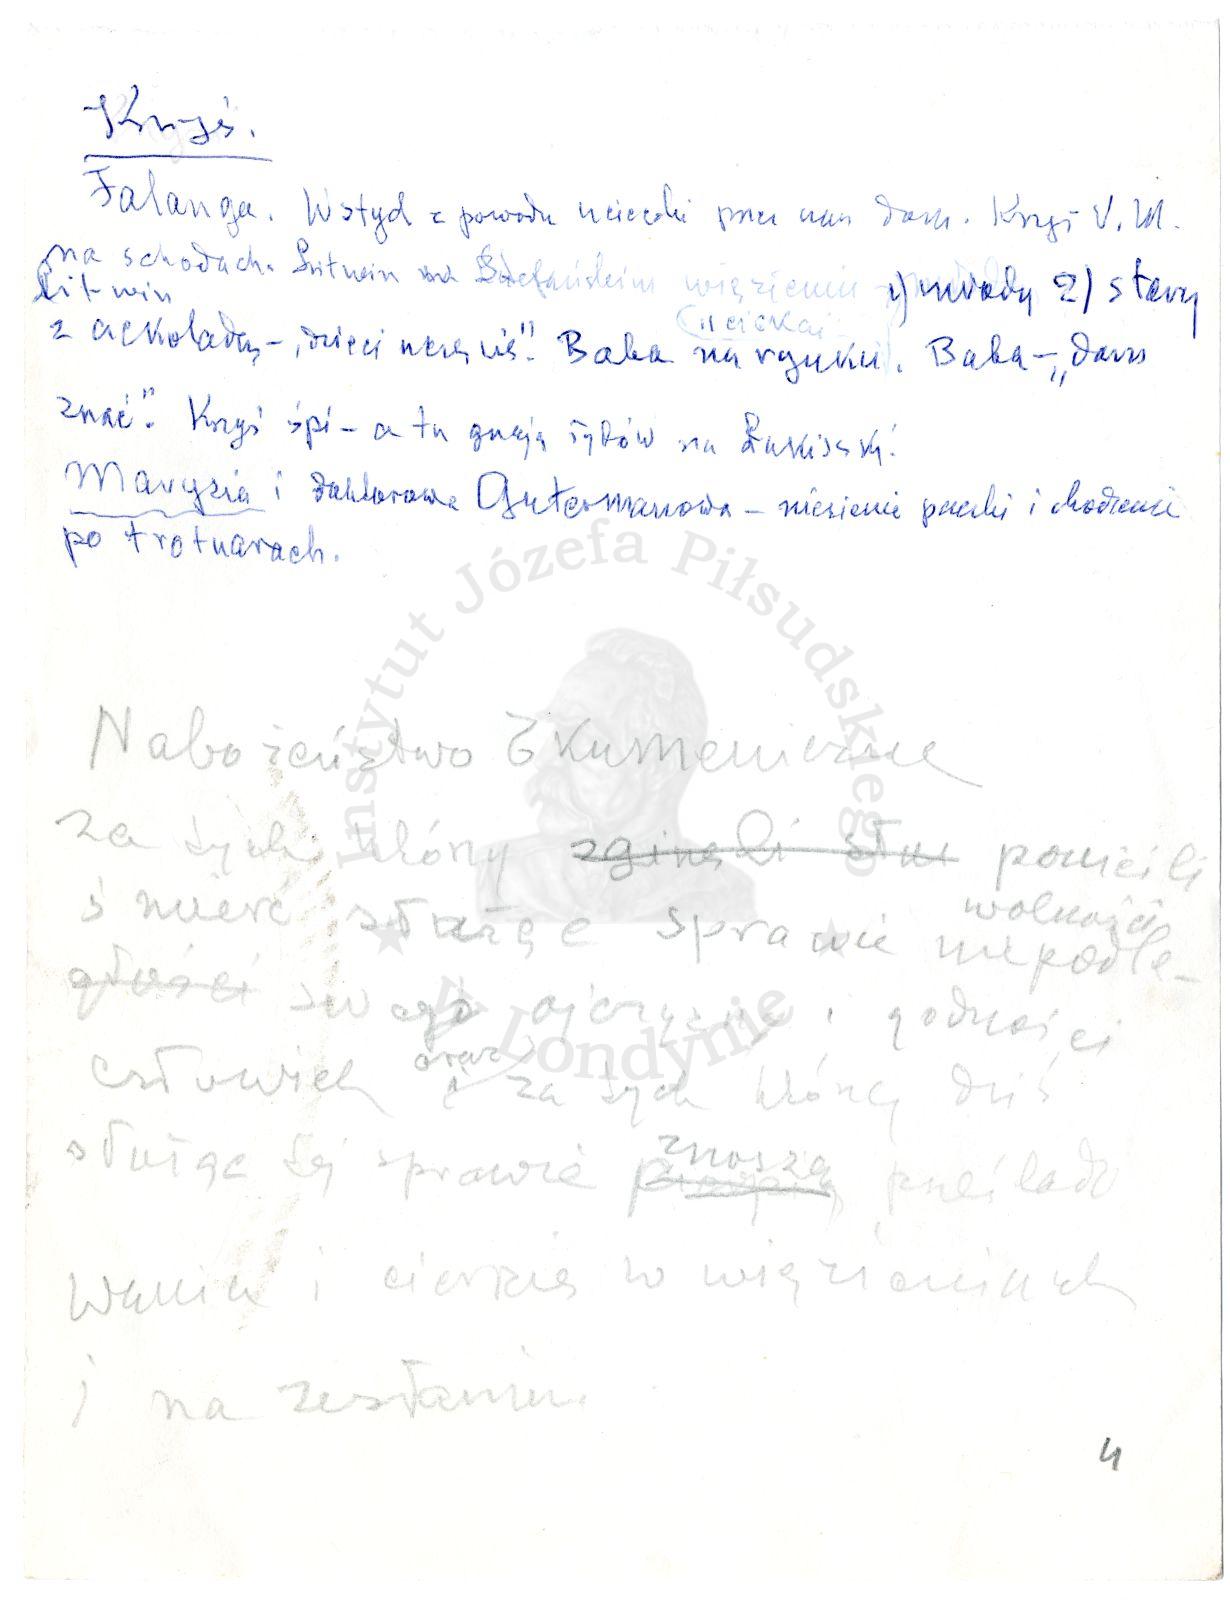 Krzyś.
Falanga. Wstyd z powodu ucieczki przez nasz dom. Krzyś V. M.
na schodach. Litwin na Stefańskim więzieniu 1) młody 2) stary
Litwin
(uciekaj
z czekoladą – "dzieci uczą się". Baba na rynku. Baba – "dam
znać". Krzyś śpi – a tu gnają Żydów na Łukiszki!
Marysia i doktorowa Gutermanowa – niesienie paczki i chodzenie
po trotuarach.
Nabożeństwo Ekumeniczne
za tych którzy zginęli ponieśli
śmierć służąc sprawie wolności niepodle-
głości swego ojczyzny i godności
człowieka oraz i za tych którzy dziś
służąc tej sprawie znoszą prześlado
wania i cierpią w więzieniach
i na zesłaniu.
4
Instytut Józefa Piłsudskiego
w Londynie